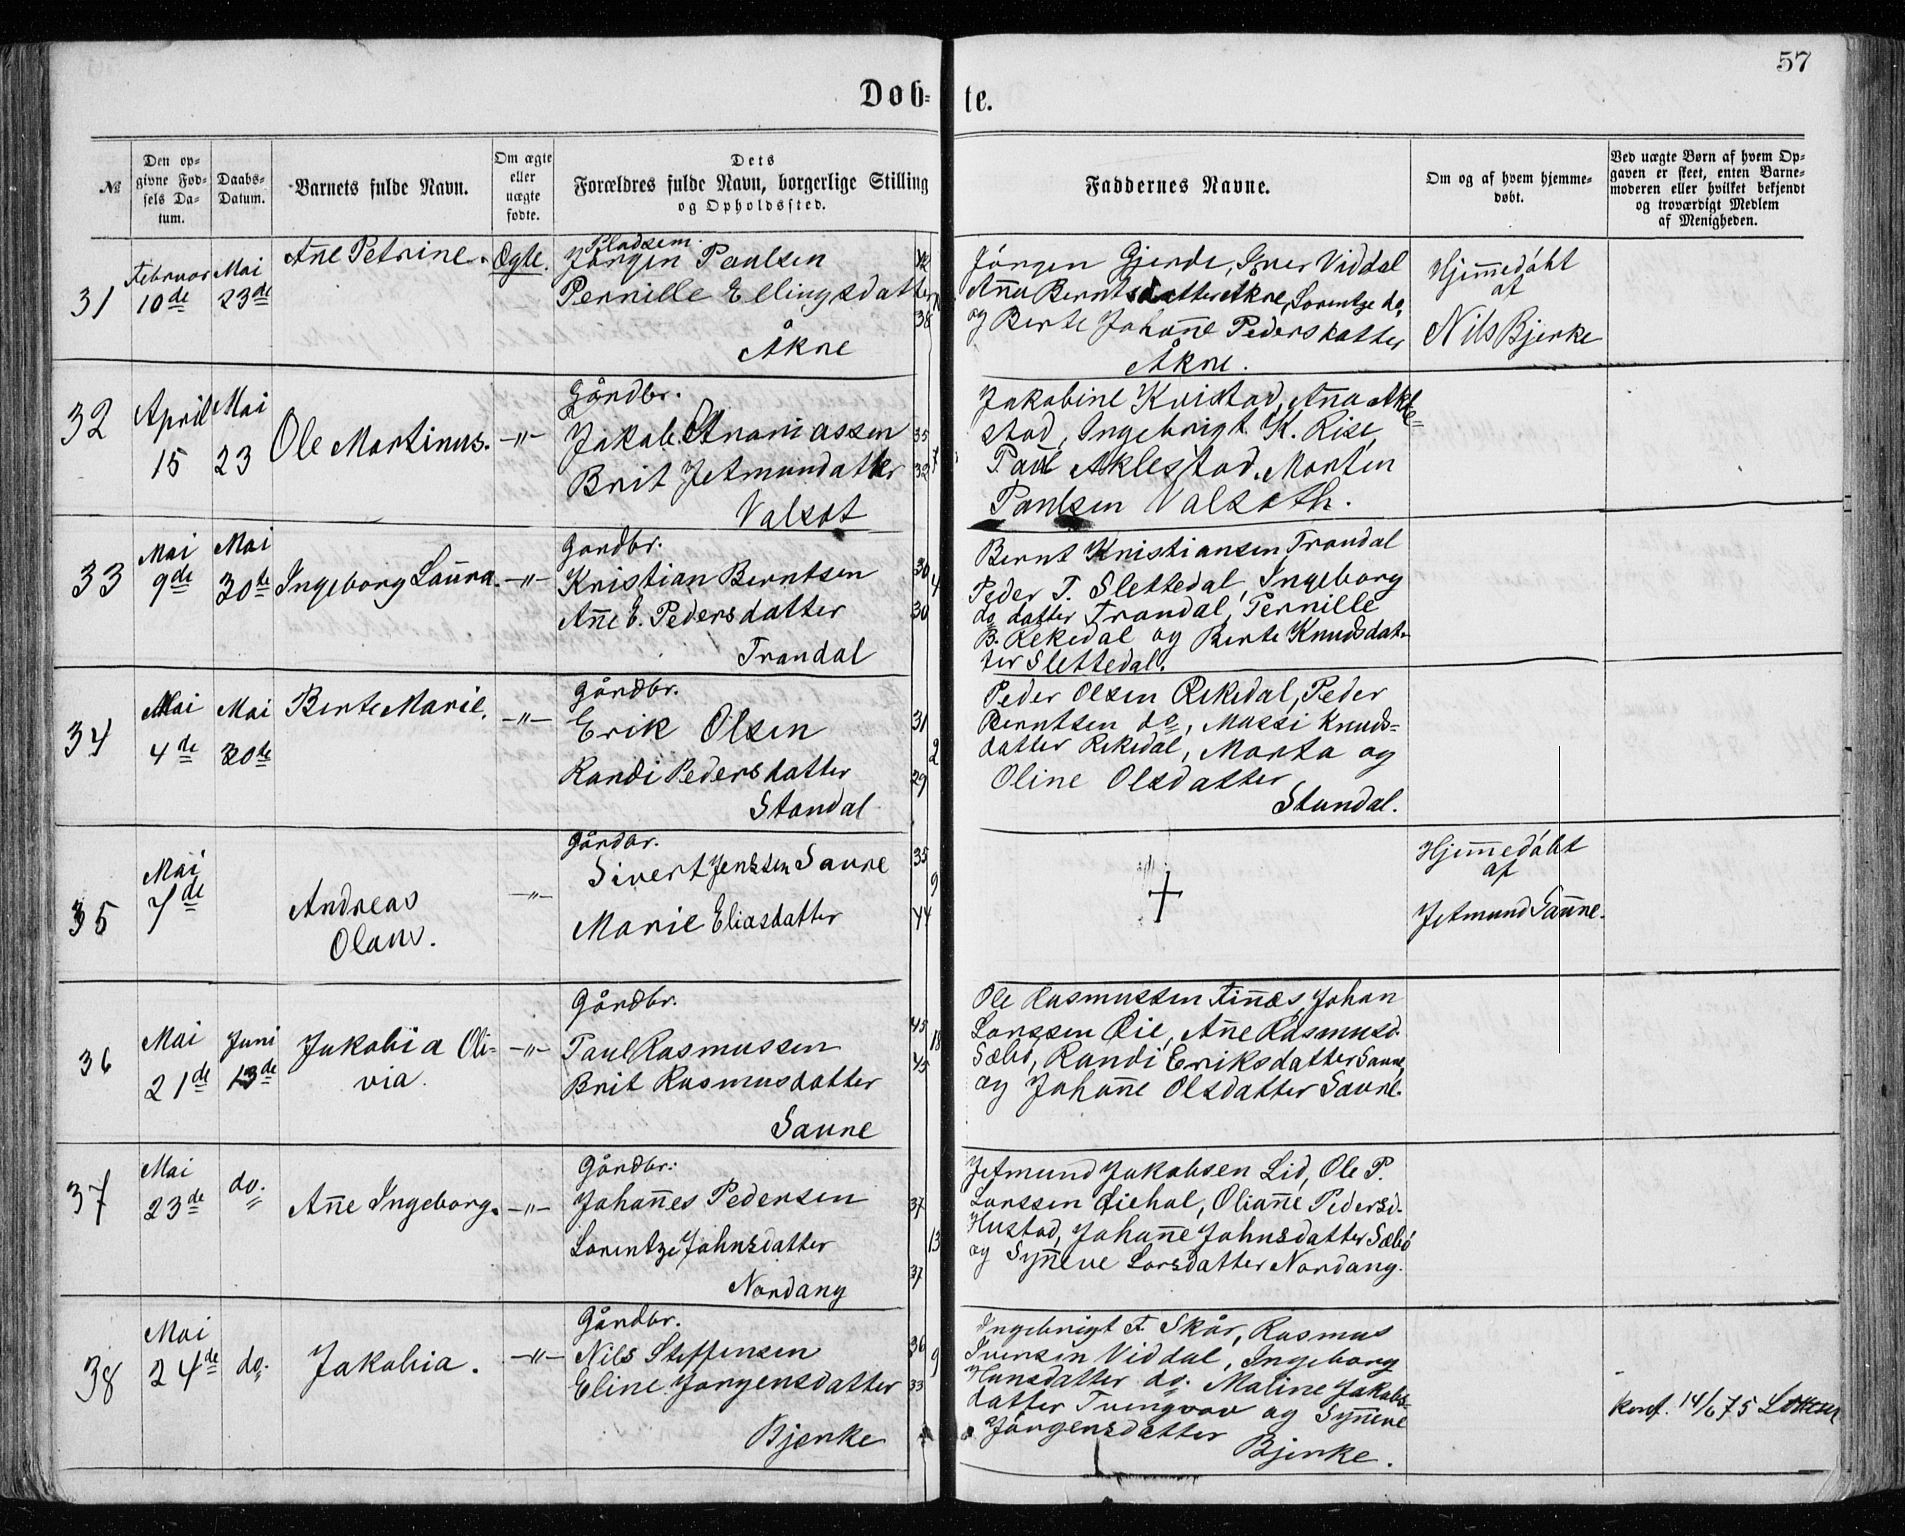 57
Døb- te.
№
Den op-
givne Fød-
sels Da-
tum.
Daabs-
Datum.
Barnets fulde Navn.
Om ægte
eller
uægte
fødte.
Dets
Forældres fulde Navn, borgerlige Stilling
og Opholdssted.
Faddernes Navne.
Om og af hvem hjemme-
døbt.
Ved uægte Børn af hvem Op-
gaven er skeet, enten Barne-
moderen eller hvilket bekjendt
og troværdigt Medlem
af Menigheden.
31
Februar
10de
Mai
23de
Ane Petrine.
Ægte.
Pladsem.
Jørgen Paulsen 42
Pernille Ellingsdatter
38
Åkre
Jørgen Gjerde, Iver Viddal
Anna Berntsdatter Akre, Lorentze do,
og Berte Johanne Pedersdatter
Åkre.
Hjemmedøbt
af
Nils Bjerke
32
April
15
Mai
23
Ole Martinus.
-"-
Gårdbr.
Jakob Ananassen 35
Brit Jetmundatter 32 7
Valset
Jakobine Kvistad, Anna Akle-
stad, Ingebrigt K. Rise,
Paul Aklestad. Morten
Paulsen Valseth.
33
Mai
9de
Mai
30te
Ingeborg Laura.
-"-
Gardbr.
Kristian Berntsen 30
4
Ane E. Pedersdatter 30
Trandal
Bernt Kristiansen Trandal
Peder T. Slettedal, Ingeborg
do datter Trandal, Pernille
B. Rekedal og Berte Knudsdat-
ter Slettedal.
34
Mai
4de
Mai
30te
Berte Marie.
-"-
Gårdbr.
Erik Olsen 31
2
Randi Pedersdatter 29
Standal
Peder Olsen Rekedal, Peder
Berntsen do, Massi Knuds-
datter Rekedal, Marta og
Oline Olsdatter
Standal.
35
Mai
7de
Andreas
Olaus.
-"-
Gårdbr.
Sivert Jenssen Saure 35
9
Marie Eliasdatter 44
Hjemmedøbt
af
Jetmund Saure.
36
Mai
21de
Juni
13de
Jakobia Oli-
via.
-"-
Gårdbr.
45 18
Paul Rasmussen
45
Brit Rasmusdatter
Saure
Ole Rasmussen Finæs, Johan
Larssen Øie, Ane Rasmusd.
Sæbø, Randi Eriksdatter Saure,
og Johanne Olsdatter Saure.
37
Mai
23de
do.
Ane Ingeborg.
-"-
Gårdbr.
Johannes Pedersen 37
Lorentze Johnsdatter 13
37
Nordang
Jetmund Jakobsen Lid, Ole P.
Larssen Øiehal, Oliane Pedersd.
Hustad, Johanne Johnsdatter Sæbø
og Synneve Larsdatter Nordang.
38
Mai
24de
do.
Jakobia.
-"-
Gårdbr.
Nils Steffensen 36
9
Eline Jørgensdatter 33
Bjerke
Ingebrigt T. Skår, Rasmus
Iversen Viddal, Ingeborg
Hansdatter do. Maline Jakobs-
datter Tvergrov og Synneve
Jørgensdatter
Bjerke.
konf. 14/6 75